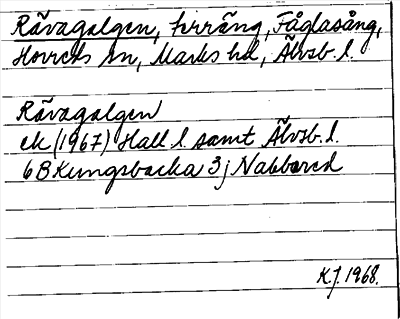 Rävagalgen, terräng, Fåglasång,
Horreds sn, Marks hd, Älvsb. l.
Rävagalgen
ek (1967) Hall l. samt Älvsb. l.
6B Kungsbacka 3j Nabbared
K.J. 1968.